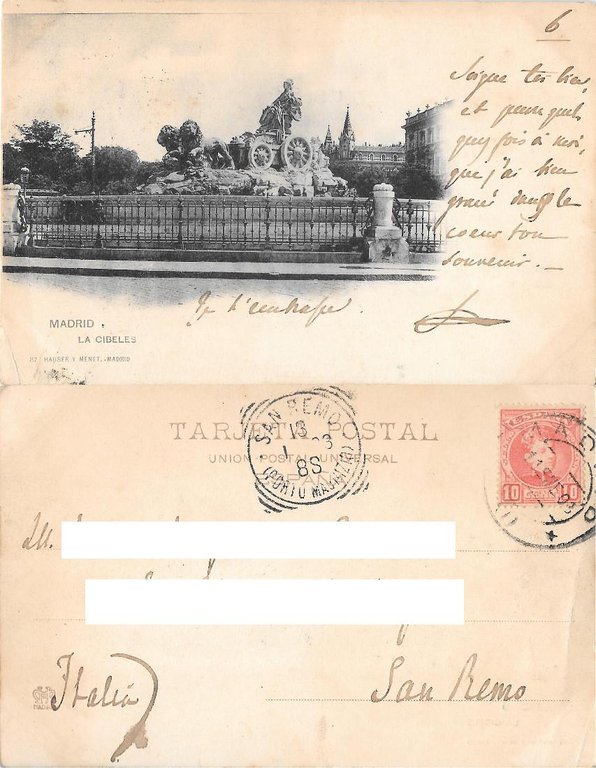 6
Soigne tes lien,
et pense quel
quefois à moi,
que j'ai bien
gravé dans le
coeur ton
souvenir. —
Je t'embrasse.
MADRID.
LA CIBELES
HAUSER Y MENET.-MADRID
TARJETA POSTAL
UNION POSTAL UNIVERSAL
ESPAÑA
SAN REMO
13
8S
(PORTO MAURIZIO)
10 10
MADRID
M.
Italia
San Remo